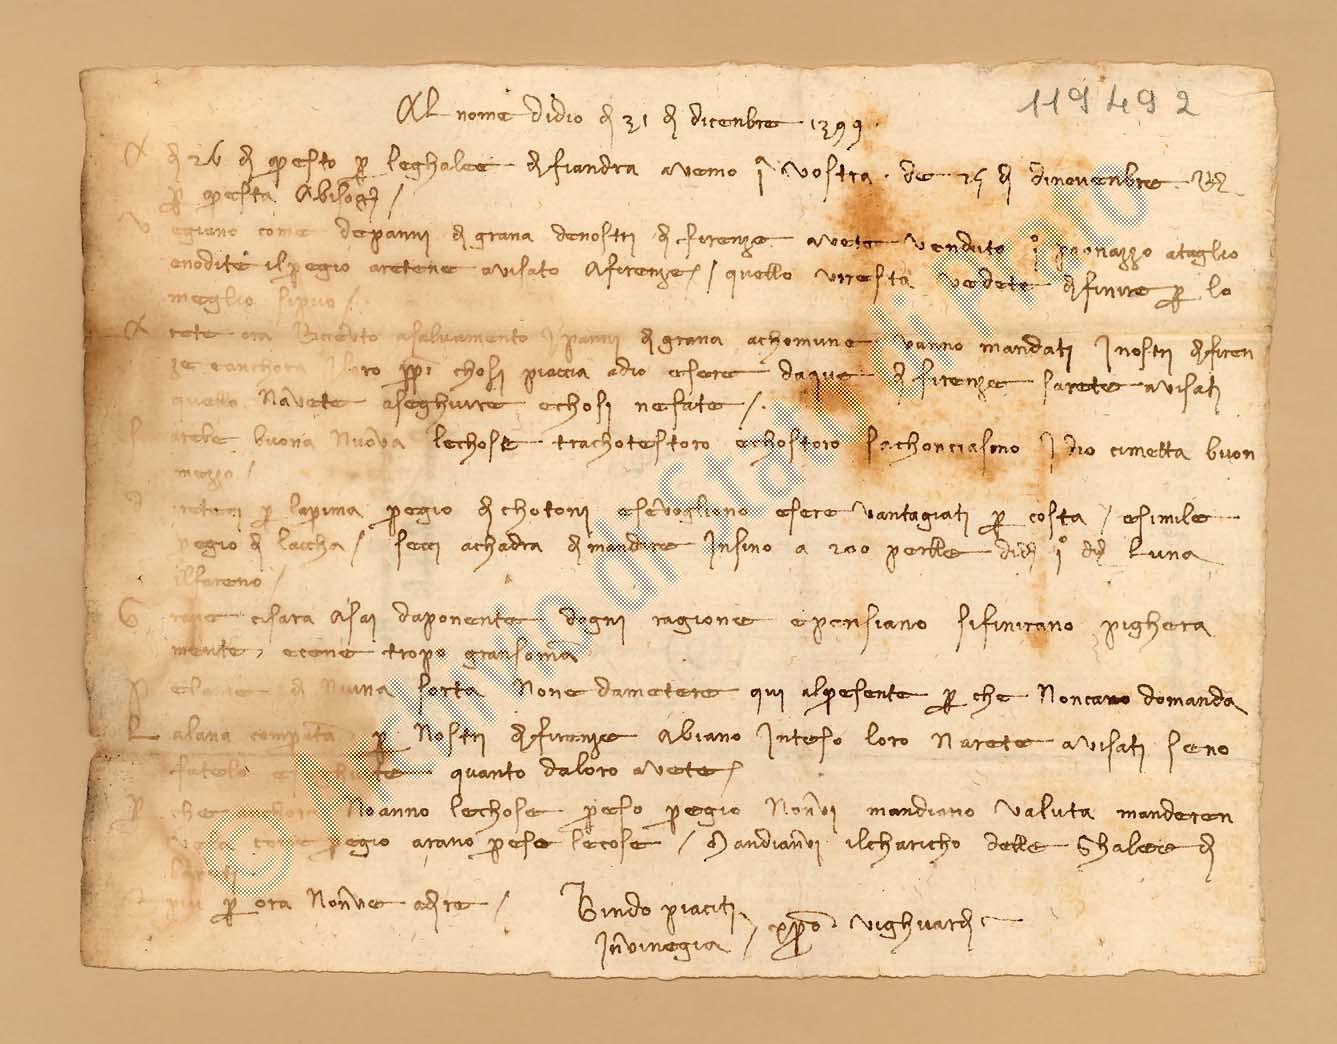 119492
Al nome di dio dì 31 di dicenbre 1399.
A dì 26 di questo per le ghalee di fiandra avemo 1ª vostra de 25 di di novenbre
per questa
V egiano come de panni di grana de nostri di firenze avete venduto 1º paonazzo a taglio
e no dite il pregio aretene avisato a firenze / quello vi resta vedete di finire per lo
meglio si può /
A rete ora ricevuto a salvamento panni di grana a chomune vanno mandati i nostri di firen
ze chosì piaccia a dio esere da que di firenze sarete avisati
quello n'avete a seghuire e chosì ne fate /
S arebe buona nuova le chose tra chotestoro e chostoro s'achonciasino idio ci metta buon
mezzo /
per la prima pregio di chotoni e se vogliono esere vantagiati per costà / e simile
pregio di laccha / seci achadrà di mandare insino a 200 1º di luna
il fareno /
G rane ci sarà asai da ponente d'ogni ragione e pensiano si finirano pighera
mente, e cene tropo gran soma
P elarie di niuna sorta non è da metere qui al presente per che non c'ano domanda
L a lana conprata per nostri di firenze abiano inteso loro n'arete avisati se no
fatelo e seghuite quanto da loro avete /
P er che anchora no ànno le chose preso pregio non vi mandiano valuta manderen
vela come pregio arano prese le cose / mandianvi il charicho delle ghalee di
baruti
E più per ora non v'è a dire /
Bindo piaciti
in vinegia / xpofano vighuardi
© Archivio di Stato di Prato